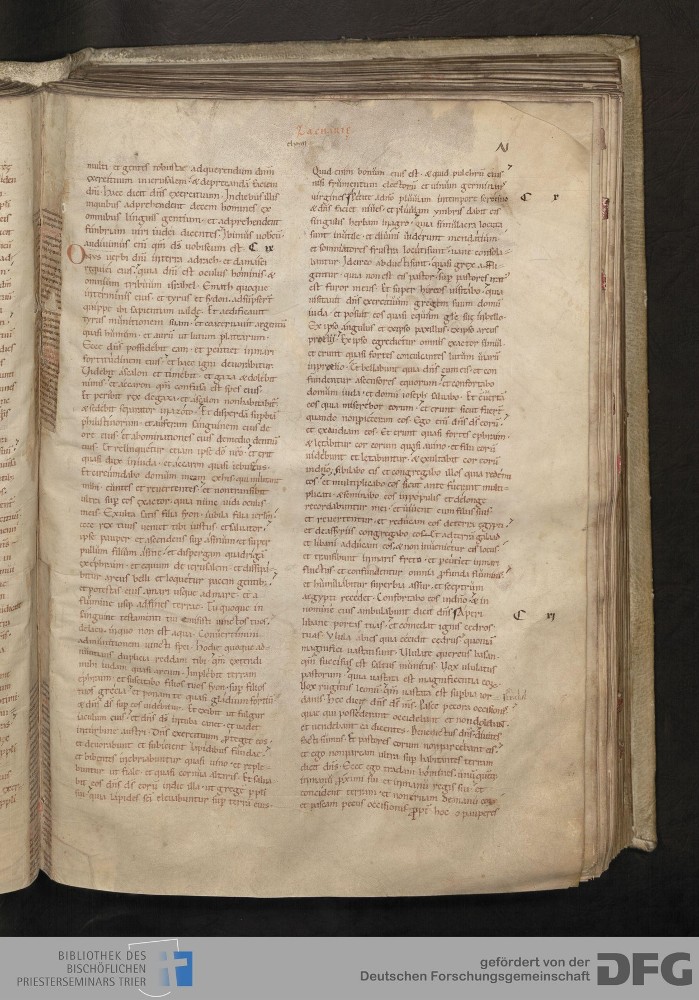 Zacharias
multi et gentes robustae ad querendum dnm
exercituum in ierusalem · & deprecandā faciem
dni · Haec dicit dns exercituum · In diebus illis
in quibus adprehendent decem homines ex
omnibus linguis gentium · et adprehendent
fimbriam viri iudei dicentes · Ibimus vobiscū
audivimus eni qm ds vobiscum est · C ix
Onus verbi dni in terra adrach · et damasci
requiei eius · quia dni est oculus hominis · &
omnium tribuum israhel · Emath quoque
in terminis eius · et tyrus et sydon · adsūpserꝛ
quippe sibi sapientiam valde · Et aedificavit
tyrus munitionem suam · et coacervavit argentū
quasi humum · et aurū ut lutum platearum ·
Ecce dns possidebit eam · et percutiet in mari
fortitudinem eius · et haec igni devorabitur ·
Videbit ascalon et timebit · et gaza & dolebit
nimis · et accaron · qm confusa est spes eius ·
Et peribit rex de gaza · et ascalon non habitabitꝛ
& sedebit separator in azoto · Et disperdā supbiā
philistinorum · et auferam sanguinem eius de
ore eius · et abominationes eius de medio dentiū
eius · Et relinquetur etiam ipse dō nrō · et erit
quasi dux in iuda · et accaron quasi iebuseus ·
Et circumdabo domum meam ex his qui militant
mihi · euntes et revertentes · et non transibit
ultra sup eos exactor · quia nunc vidi oculis
meis · Exulta satis filia syon · iubila filia ierlm
ecce rex tuus veniet tibi iustus · et salvator ·
ipse pauper · et ascendens sup asinum · et super
pullum filium asinę · et disperdam quadrigā
ex ephraim · et equum de ierusalem · et dissipa
bitur arcus belli · et loquetur pacem gentib ·
et potestas eius a mari usque ad mare · et a
flumine usq ad fines terrae · Tu quoque in
sanguine testamenti tui emisisti vinctos tuos
de lacu · in quo non est aqua · Convertimini
ad munitionem vincti spei · Hodie quoque ad
nuntians duplicia reddam tibi · qm extendi
mihi iudam quasi arcum · Implebit terram
ephraim · et suscitabo filios tuos syon · sup filios
tuos grecia · et ponam te quasi gladium fortiū
& dns ds sup eos videbitur · Et exibit ut fulgur
iaculum eius · et dns ds in tuba canet · et vadet
in turbine austri · Dns exercituum proteget eos ·
et devorabunt · et subicient lapidibus fundae ·
et bibentes inebriabuntur quasi vino · et reple
buntur ut fiale · et quasi cornua altaris · Et salva
bit eos dns ds eorum in die illa · ut grege ppli
sui · quia lapides sci elevabuntur sup terrā eius ·
Quid enim bonum eius est · & quid pulchrū eius ·
nisi frumentum electorū · et vinum germinans
virgines · Petite a dno pluviam in tempore serotino C x
& dns faciet nives · et pluviam ymbris dabit eis
singulis herbam in agro · quia simulacra locuta
sunt inutile · et divini viderunt mendatium ·
et somniatores frustra locuti sunt · vane consola
bantur · Idcirco abducti sunt · quasi grex · affli
gentur · quia non est eis pastor · Sup pastores iratꝰ
est furor meus · Et super hircos visitabo · quia
visitavit dns exercituum gregem suum domū
iuda · et posuit eos quasi equum glę suę in bello ·
Ex ipso angulus · et ex ipso paxillus · ex ipso arcus
proelii · ex ipso egredietur omnis exactor simul ·
et erunt quasi fortes conculcantes lutum viarū
in proelio · Et bellabunt quia dns cum eis · et con
fundentur ascensores equorum · et confortabo
domum iuda · et domū ioseph salvabo · Et cvertā
eos quia miserebor eorum · et erunt sicut fuerꝛ
quando non proieceram eos · Ego eni dns ds eorū
et exaudiam eos · Et erunt quasi fortes ephraim ·
& letabitur cor eorum quasi a vino · et filii eorū
videbunt et letabuntur · & exultabit cor eorū
in dno · sibilabo eis et congregabo illos quia redemi
eos · et multiplicabo eos sicut ante fuerant multi
plicati · & seminabo eos in populis · et de longe
recordabuntur mei · et vivent cum filiis suis
et revertentur · et reducam eos de terra egypti ·
et de assyriis congregabo eos · et ad terrā galaad
et libani adducam eos · & non invenietur eis locus ·
et transibunt in maris freto · et percutiet in mari
fluctus · et confundentur omnia profunda fluminis ·
et humiliabitur superbia assur · et sceptrum
aegypti recedet · Confortabo eos in dno · & in
nomine eius ambulabunt dicit dns · Aperi C xi
libane portas tuas · et comedat ignis cedros
tuas · Ulula abies quia cecidit cedrus quoniā
magnifici vastati sunt · Ululate quercus basan ·
qm succisus est saltus munitus · Vox ululatus
pastorum · quia vastata est magnificentia eoꝝ ·
vox rugitus leonū · qm vastata est supbia ior
danis · Hec dicit dns ds ms · Pasce pecora occisionis
quae qui possederant occidebant · et non dolebant ·
et vendebant ea dicentes · Benedictus dns · divites
facti sumus · Et pastores eorum non parcebant eis ·
et ego non parcam ultra sup habitantes terram
dicit dns · Ecce ego tradam homines · unūquēq
in manu proximi sui · et in manu regis sui · et
concident terram · et non eruam de manu eoꝝ ·
et pascam pecus occisionis · ppt hoc o pauperes
BIBLIOTHEK DES
BISCHÖFLICHEN
PRIESTERSEMINARS TRIER
gefördert von der
Deutschen Forschungsgemeinschaft
DFG